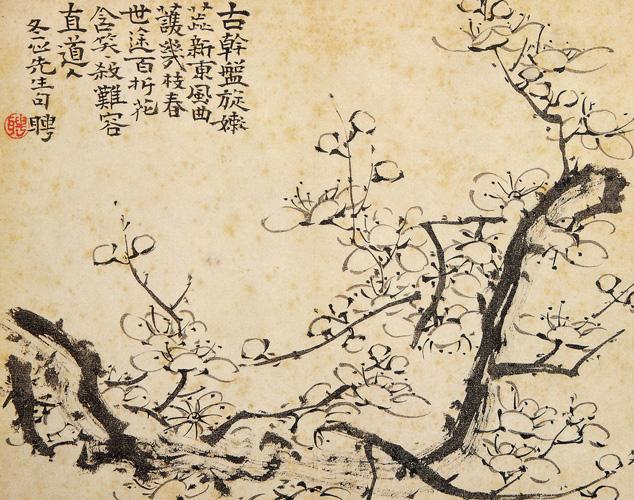 古幹盤旋嫩
蕊新東風曲
護幾枝春
世途百折花
含笑難容
直道人
冬心先生句 聘
聘